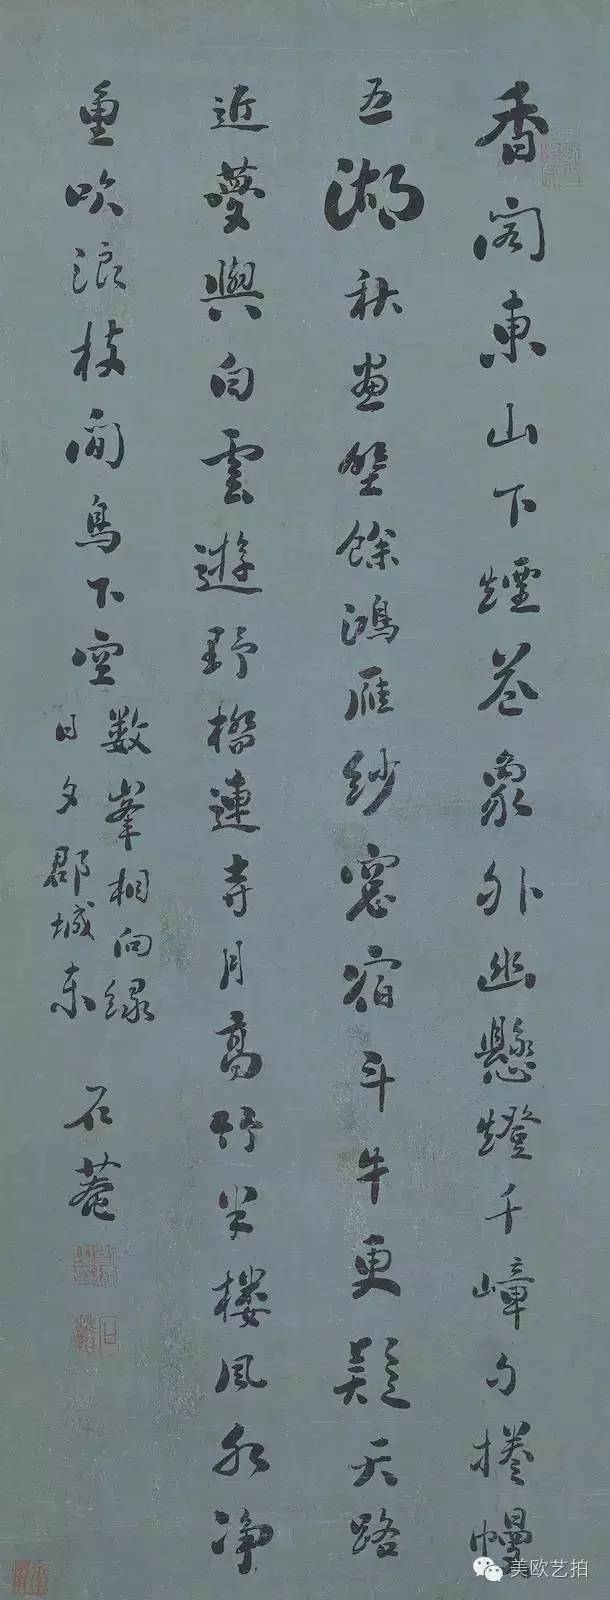 香閣東山下煙花象外幽懸燈千嶂夕捲幔
五湖秋畫壁餘鴻雁紗窓宿斗牛更疑天路
近夢與白雲遊野橋連寺月高竹半樓風水净
魚吹浪枝閒鳥下空
数峯相向緑
日夕郡城東
石菴
美欧艺拍